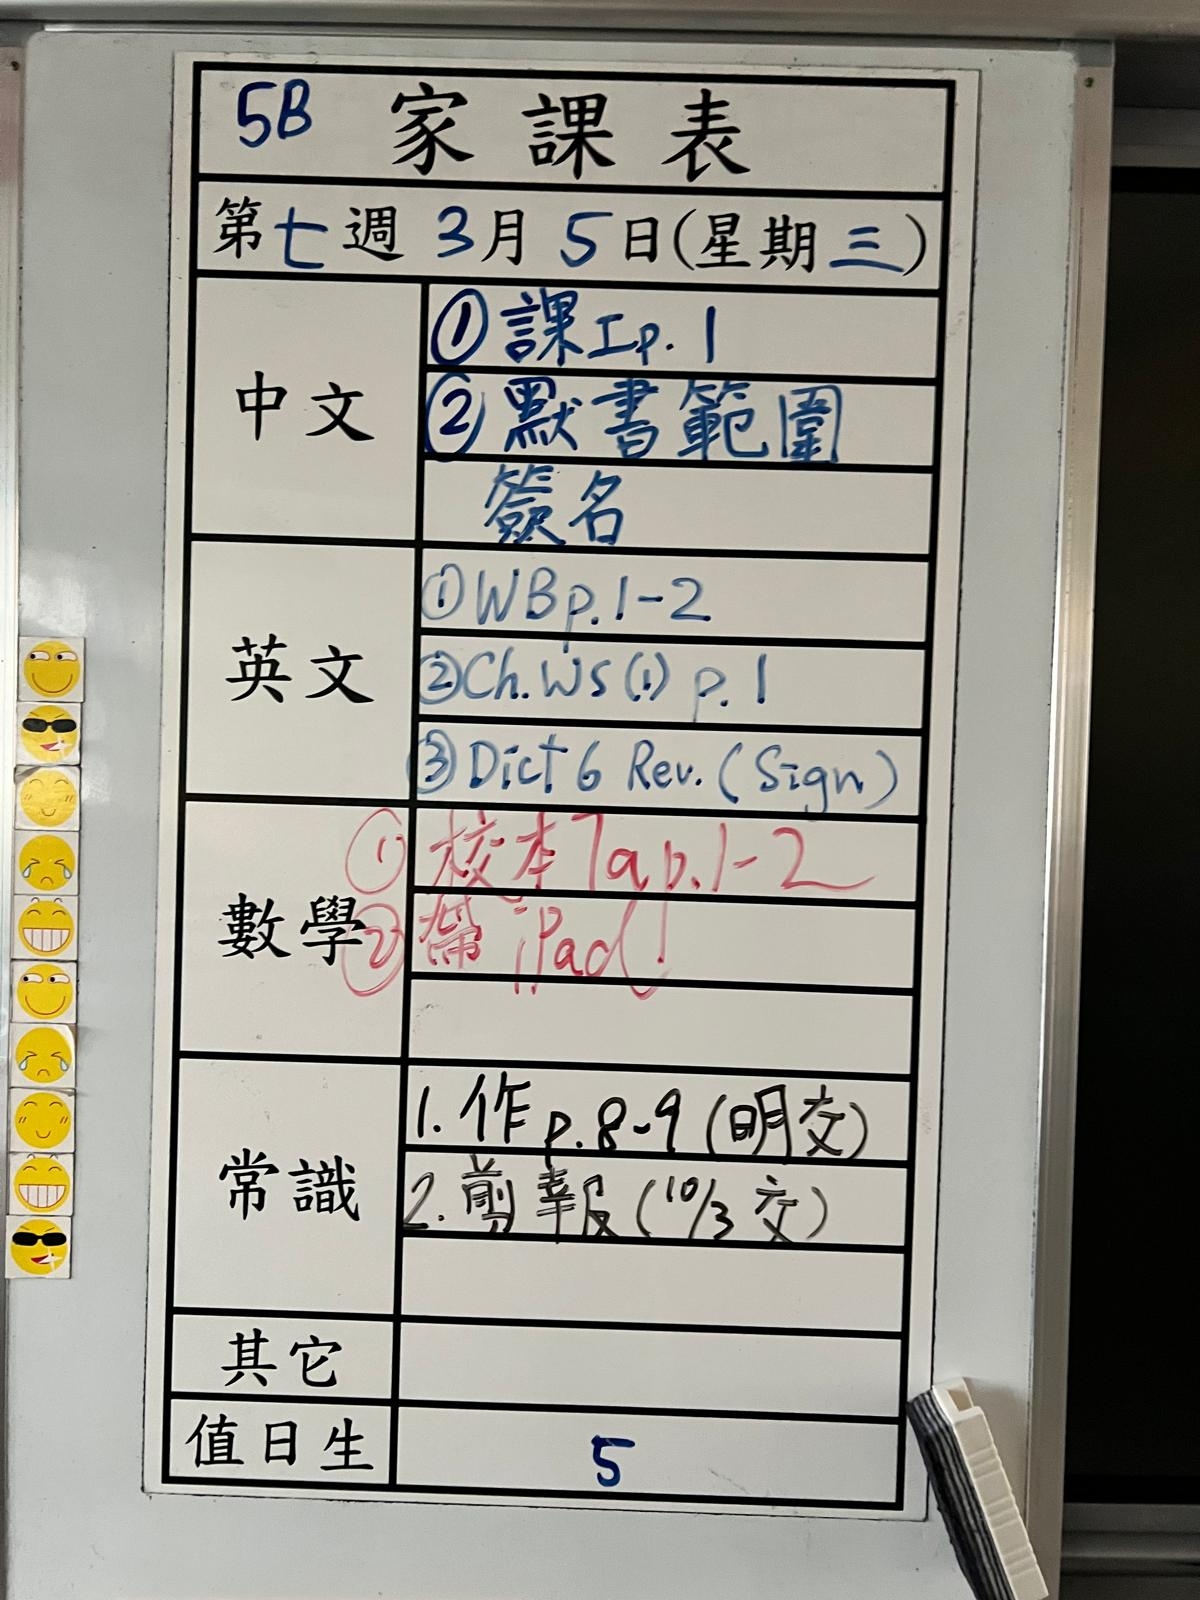 5B 家課表
第七週 3月5日(星期三)
中文
① 課工p.1
② 默書範圍
簽名
英文
① WB p.1-2
② Ch.WS(1) p.1
③ Dict 6 Rev. (Sign)
數學
① 校本7a p.1-2
② 帶 iPad!
常識
1. 作 p.8-9 (明交)
2. 剪報 (10/3 交)
其它
值日生
5